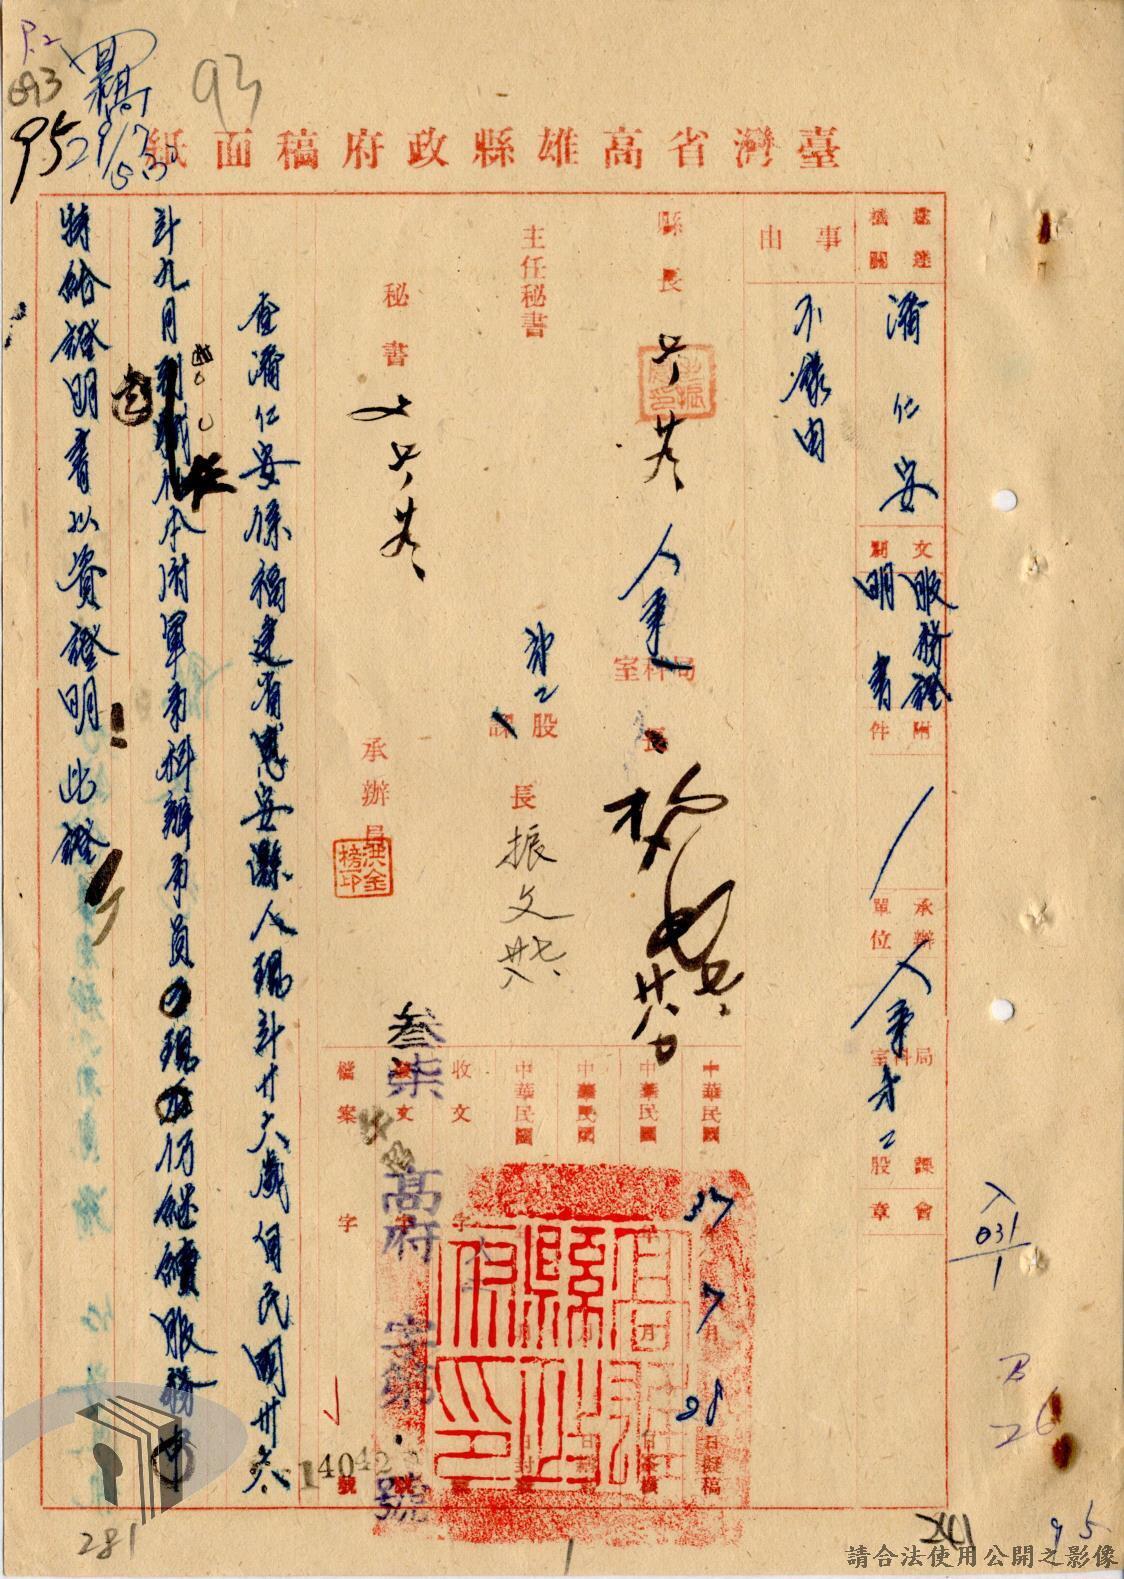 臺灣省高雄縣政府稿面紙
P.2
693
93
95
送達機關
潘仁安
文別
服務證明書
附件
承辦單位
人事
局科室
第二
課股
會章
事由
不錄由
縣長
人事
局科室長
主任秘書
第二
股課長
振文
秘書
承辦員
洪金榜印
中華民國37年7月28日擬稿
中華民國
中華民國
中華民國
收文
字
檔案
字
號
叁柒
高府
字第
號
14042
查潘仁安係福建省惠安縣人現計廿六歲自民國卅六
年九月到職任本府軍事科辦事員現仍繼續服務中
特給證明書以資證明此證
031
1
26
281
241
95
請合法使用公開之影像